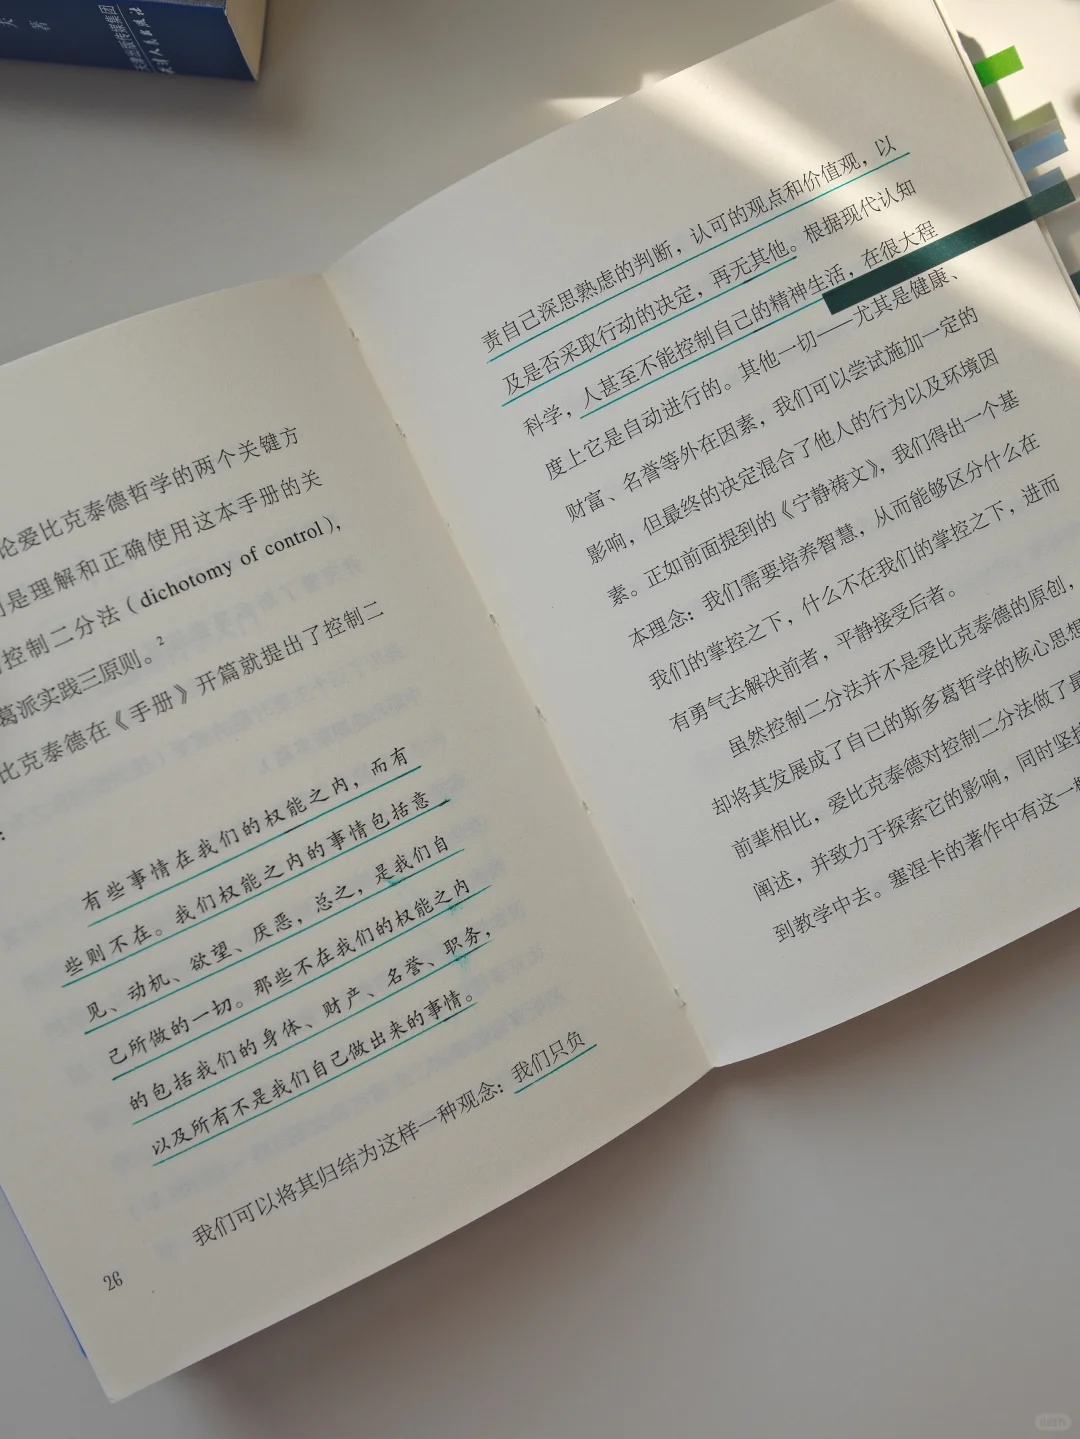 夫 著
天津出版传媒集团
天津人民出版社
论爱比克泰德哲学的两个关键方
是理解和正确使用这本手册的关
控制二分法（dichotomy of control），
葛派实践三原则。²
比克泰德在《手册》开篇就提出了控制二
：
有些事情在我们的权能之内，而有
些则不在。我们权能之内的事情包括意
见、动机、欲望、厌恶，总之，是我们自
己所做的一切。那些不在我们的权能之内
的包括我们的身体、财产、名誉、职务，
以及所有不是我们自己做出来的事情。
我们可以将其归结为这样一种观念：我们只负
26
责自己深思熟虑的判断，认可的观点和价值观，以
及是否采取行动的决定，再无其他。根据现代认知
科学，人甚至不能控制自己的精神生活，在很大程
度上它是自动进行的。其他一切——尤其是健康、
财富、名誉等外在因素，我们可以尝试施加一定的
影响，但最终的决定混合了他人的行为以及环境因
素。正如前面提到的《宁静祷文》，我们得出一个基
本理念：我们需要培养智慧，从而能够区分什么在
我们的掌控之下，什么不在我们的掌控之下，进而
有勇气去解决前者，平静接受后者。
虽然控制二分法并不是爱比克泰德的原创，
却将其发展成了自己的斯多葛哲学的核心思想
前辈相比，爱比克泰德对控制二分法做了最
阐述，并致力于探索它的影响，同时坚持
到教学中去。塞涅卡的著作中有这一